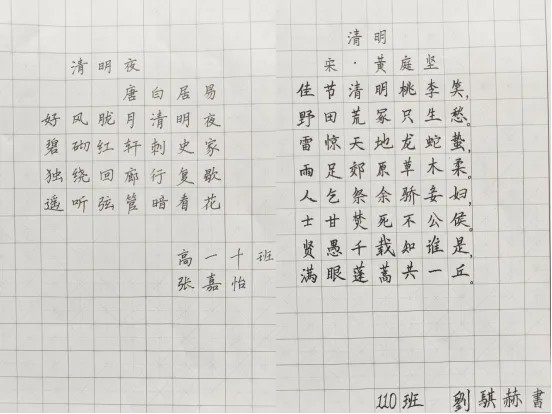 清明夜
唐白居易
好风胧月清明夜
碧砌红轩刺史家
独绕回廊行复歇
遥听弦管暗看花
高一十班
张嘉怡
清明
宋·黄庭坚
佳节清明桃李笑，
野田荒冢只生愁。
雷惊天地龙蛇蛰，
雨足郊原草木柔。
人乞祭余骄妾妇，
士甘焚死不公侯。
贤愚千载知谁是，
满眼蓬蒿共一丘。
110班 劉骐赫書